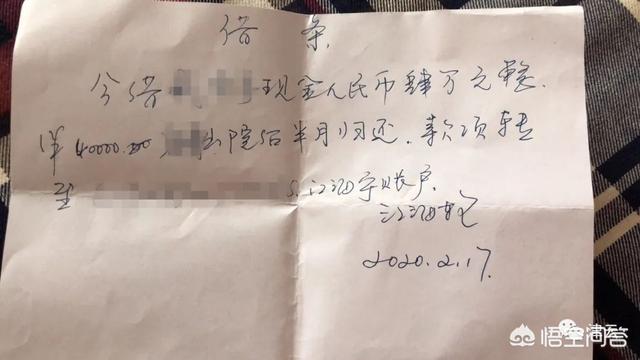 借条
今借 现金人民币肆万元整.
洋40000.00 出院后半月归还.款项转
至 账户.
2020.2.17.
悟空问答